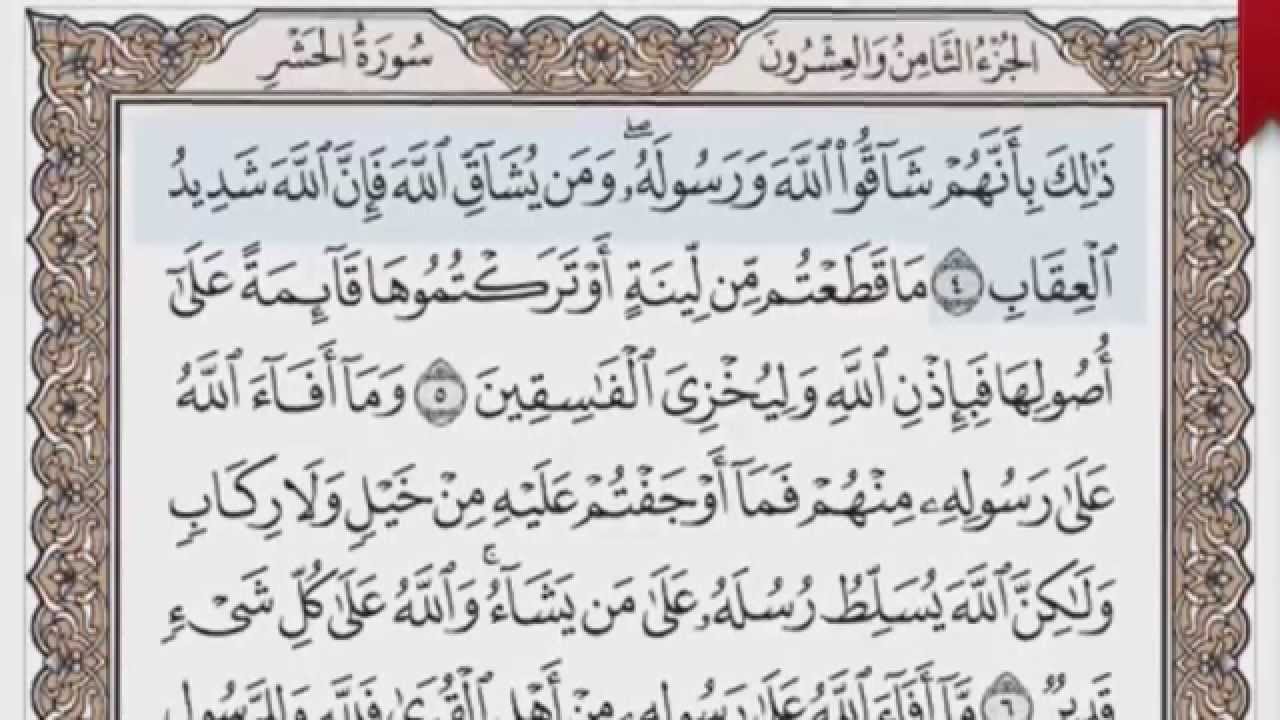 الجُزْءُ الثَّامِنُ وَالعِشْرُونَ
سُورَةُ الحَشْرِ
ذَٰلِكَ بِأَنَّهُمْ شَآقُّوا۟ ٱللَّهَ وَرَسُولَهُۥ ۖ وَمَن يُشَآقِّ ٱللَّهَ فَإِنَّ ٱللَّهَ شَدِيدُ
ٱلْعِقَابِ ٤ مَا قَطَعْتُم مِّن لِّينَةٍ أَوْ تَرَكْتُمُوهَا قَآئِمَةً عَلَىٰٓ
أُصُولِهَا فَبِإِذْنِ ٱللَّهِ وَلِيُخْزِىَ ٱلْفَٰسِقِينَ ٥ وَمَآ أَفَآءَ ٱللَّهُ
عَلَىٰ رَسُولِهِۦ مِنْهُمْ فَمَآ أَوْجَفْتُمْ عَلَيْهِ مِنْ خَيْلٍ وَلَا رِكَابٍ
وَلَٰكِنَّ ٱللَّهَ يُسَلِّطُ رُسُلَهُۥ عَلَىٰ مَن يَشَآءُ ۚ وَٱللَّهُ عَلَىٰ كُلِّ شَىْءٍ
قَدِيرٌ ٦ مَّآ أَفَآءَ ٱللَّهُ عَلَىٰ رَسُولِهِۦ مِنْ أَهْلِ ٱلْقُرَىٰ فَلِلَّهِ وَلِلرَّسُولِ